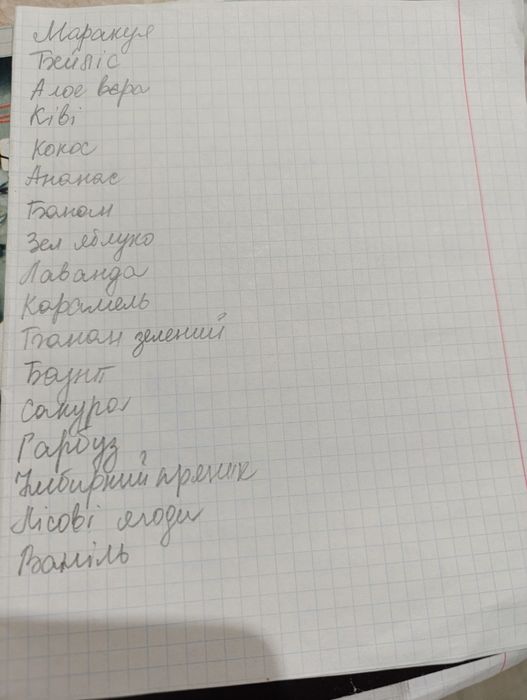 Маракуя
Бейліс
Алое вера
Ківі
Кокос
Ананас
Банан
Зел яблуко
Лаванда
Карамель
Банан зелений
Баунті
Сакура
Гарбуз
Імбирний пряник
Лісові ягоди
Ваніль